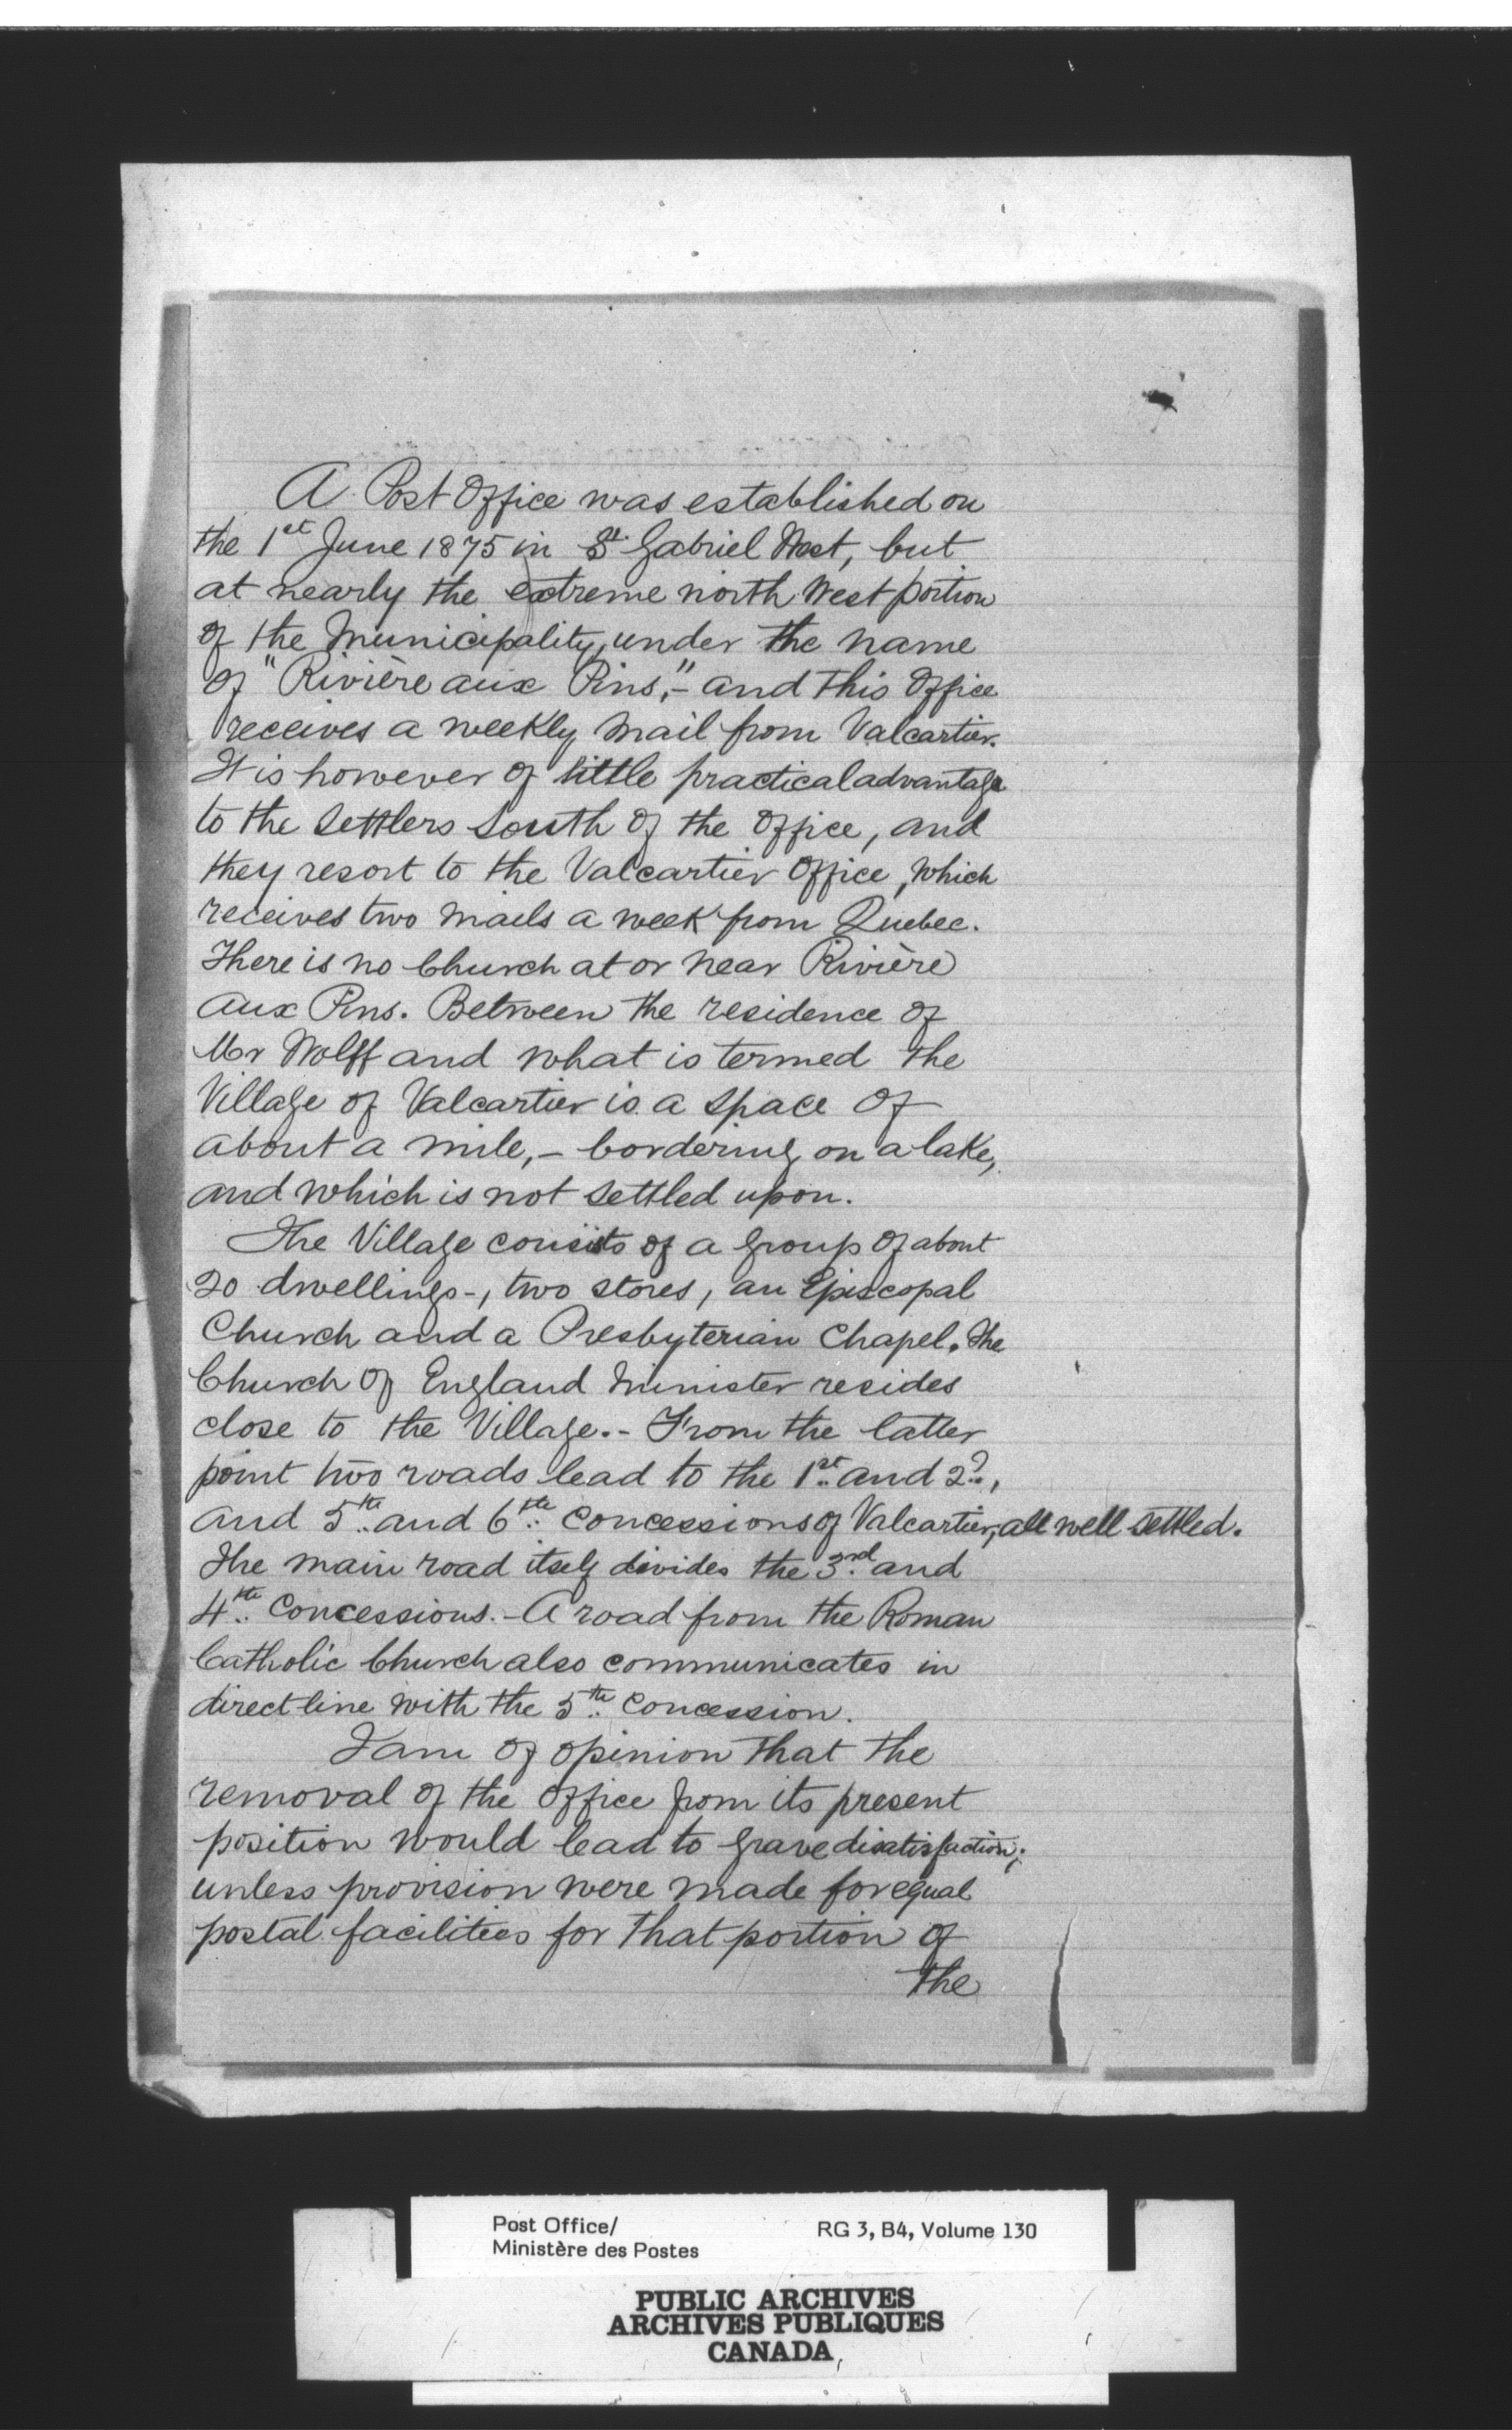 A Post Office was established on
the 1st June 1875 in St. Gabriel West, but
at nearly the extreme north west portion
of the Municipality, under the name
of "Rivière aux Pins,"- and this Office
receives a weekly mail from Valcartier.
It is however of little practical advantage
to the settlers south of the Office, and
they resort to the Valcartier Office, which
receives two mails a week from Quebec.
There is no Church at or near Rivière
aux Pins. Between the residence of
Mr Wolff and what is termed the
Village of Valcartier is a space of
about a mile, - bordering on a lake,
and which is not settled upon.
The Village consists of a group of about
20 dwellings-, two stores, an Episcopal
Church and a Presbyterian Chapel. The
Church of England Minister resides
close to the Village. - From the latter
point two roads lead to the 1st and 2d,
and 5th and 6th Concessions of Valcartier, all well settled.
The main road itself divides the 3rd and
4th Concessions. - A road from the Roman
Catholic Church also communicates in
direct line with the 5th Concession.
I am of opinion that the
removal of the Office from its present
position would lead to grave disatisfaction;
unless provision were made for equal
postal facilities for that portion of
the
Post Office/
Ministère des Postes
RG 3, B4, Volume 130
PUBLIC ARCHIVES
ARCHIVES PUBLIQUES
CANADA